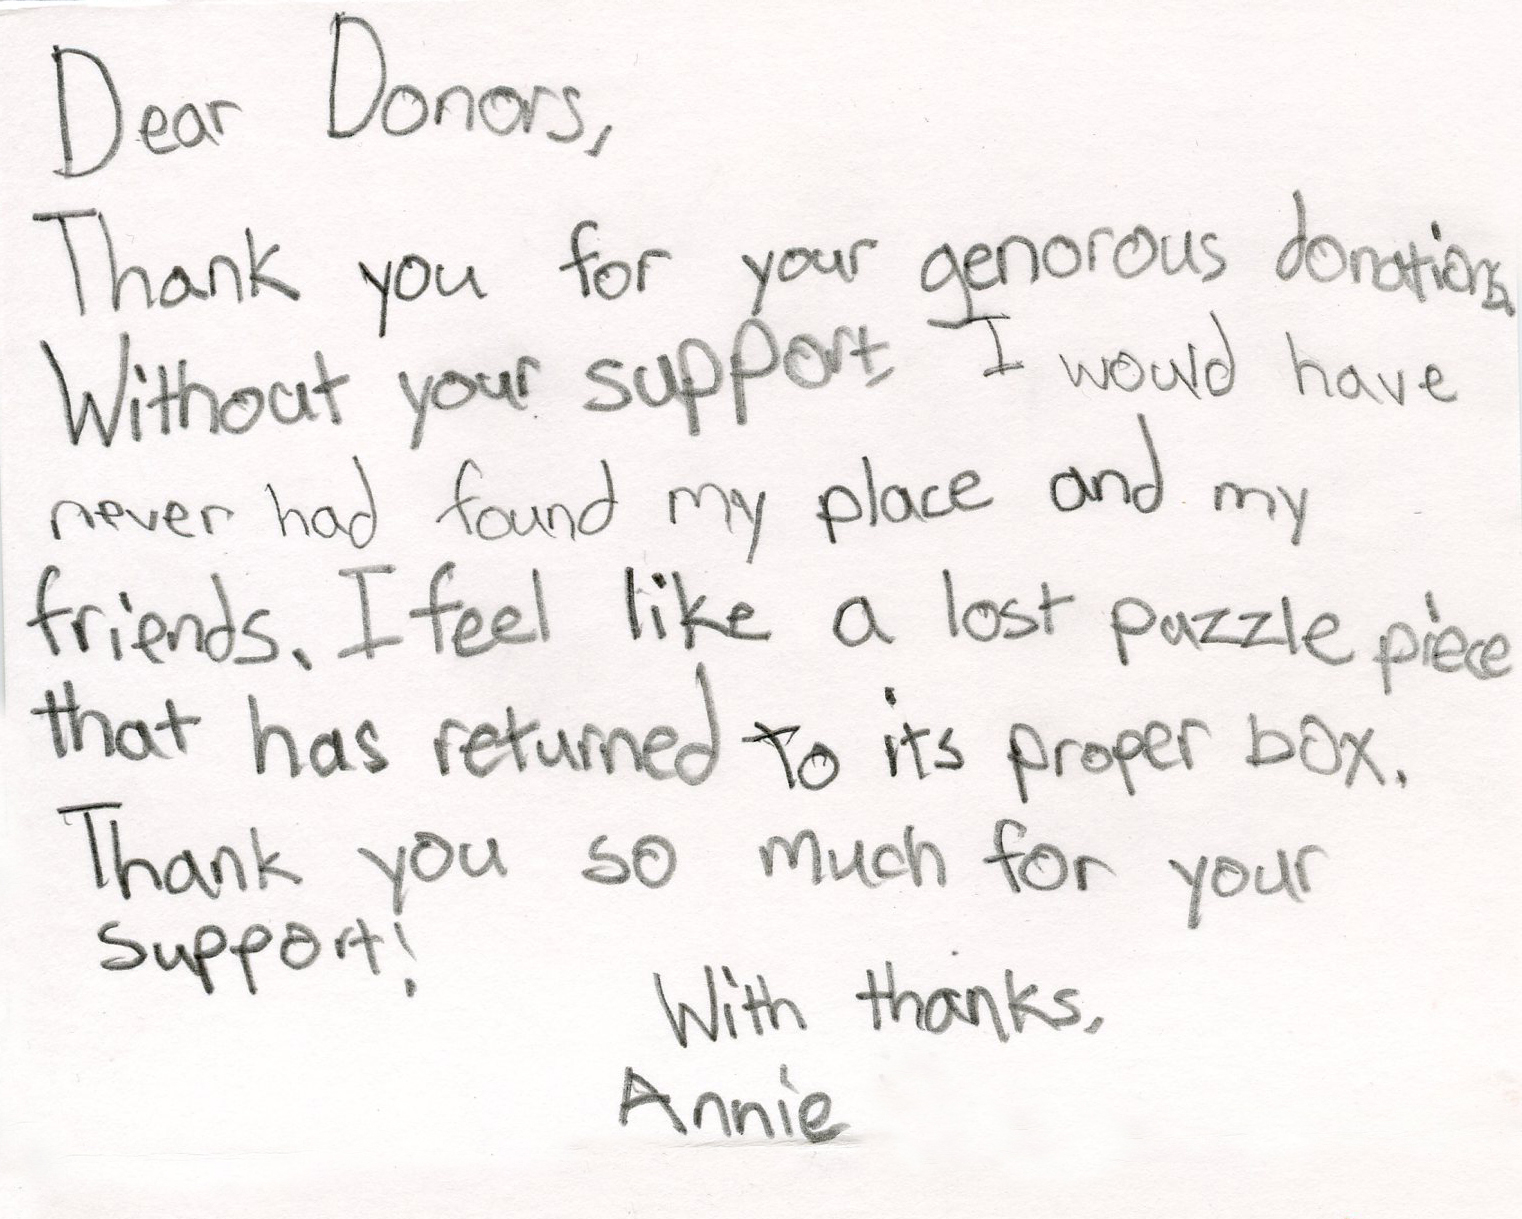 Dear Donors,
Thank you for your genorous donations.
Without your support I would have
never had found my place and my
friends. I feel like a lost puzzle piece
that has returned to its proper box.
Thank you so much for your
support!
With thanks,
Annie